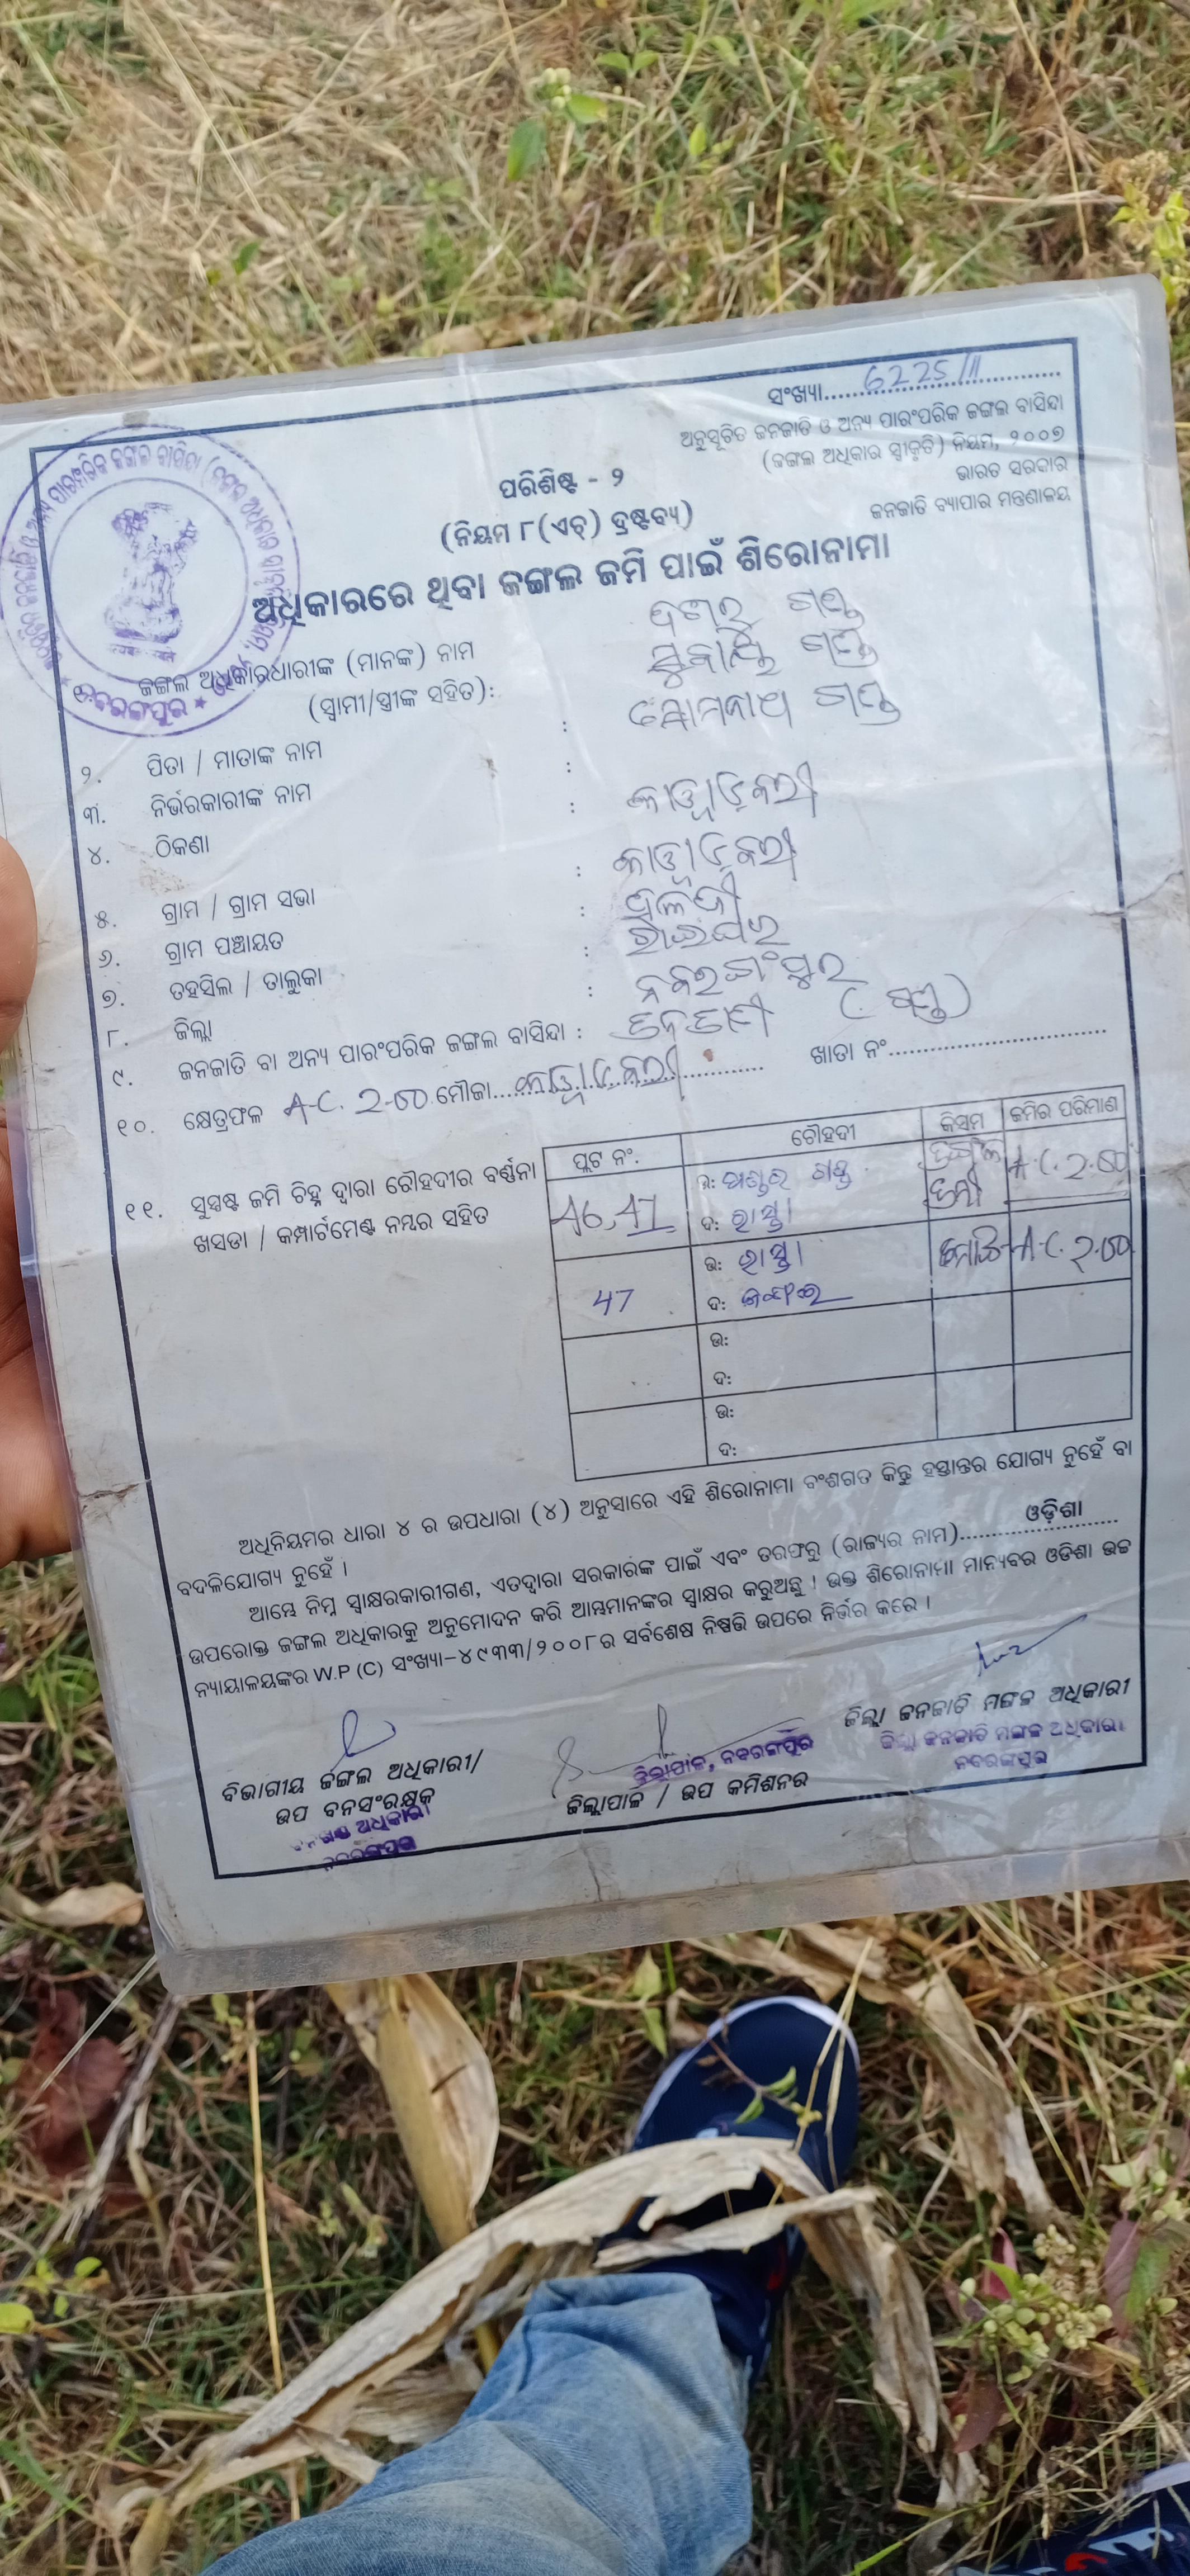 ସଂଖ୍ୟା..... 6225/11
ଅନୁସୂଚିତ ଜନଜାତି ଓ ଅନ୍ୟ ପାରଂପରିକ ଜଙ୍ଗଲ ବାସିନ୍ଦା
(ଜଙ୍ଗଲ ଅଧିକାର ସ୍ୱୀକୃତି) ନିୟମ, ୨୦୦୭
ଭାରତ ସରକାର
ଜନଜାତି ବ୍ୟାପାର ମନ୍ତ୍ରଣାଳୟ
ପରିଶିଷ୍ଟ - ୨
(ନିୟମ ୮(ଏଚ୍) ଦ୍ରଷ୍ଟବ୍ୟ)
ଅଧିକାରରେ ଥିବା ଜଙ୍ଗଲ ଜମି ପାଇଁ ଶିରୋନାମା
ଜଙ୍ଗଲ ଅଧିକାରଧାରୀଙ୍କ (ମାନଙ୍କ) ନାମ
(ସ୍ୱାମୀ/ସ୍ତ୍ରୀଙ୍କ ସହିତ):
୨. ପିତା / ମାତାଙ୍କ ନାମ : ସୋମନାଥ ଗଣ୍ଡ
୩. ନିର୍ଭରକାରୀଙ୍କ ନାମ :
୪. ଠିକଣା :
୫. ଗ୍ରାମ / ଗ୍ରାମ ସଭା :
୬. ଗ୍ରାମ ପଞ୍ଚାୟତ :
୭. ତହସିଲ / ତାଲୁକା : ରାଇଘର
୮. ଜିଲ୍ଲା : ନବରଙ୍ଗପୁର
୯. ଜନଜାତି ବା ଅନ୍ୟ ପାରଂପରିକ ଜଙ୍ଗଲ ବାସିନ୍ଦା : ଜନଜାତି (ଗଣ୍ଡ)
୧୦. କ୍ଷେତ୍ରଫଳ A.C. 2.60 ମୌଜା..... ଖାତା ନଂ.....
୧୧. ସୁସ୍ପଷ୍ଟ ଜମି ଚିହ୍ନ ଦ୍ୱାରା ଚୌହଦୀର ବର୍ଣ୍ଣନା
ଖସଡା / କମ୍ପାର୍ଟମେଣ୍ଟ ନମ୍ବର ସହିତ
ପ୍ଲଟ ନଂ. ଚୌହଦୀ କିସମ ଜମିର ପରିମାଣ
46,47 ଉ: ଗଣ୍ଡ A.C. 2.60
ଦ: ରାସ୍ତା
47 ଉ: ରାସ୍ତା A.C. 2.60
ଦ: ଜଙ୍ଗଲ
ଉ:
ଦ:
ଉ:
ଦ:
ଅଧିନିୟମର ଧାରା ୪ ର ଉପଧାରା (୪) ଅନୁସାରେ ଏହି ଶିରୋନାମା ବଂଶଗତ କିନ୍ତୁ ହସ୍ତାନ୍ତର ଯୋଗ୍ୟ ନୁହେଁ ବା
ବଦଳିଯୋଗ୍ୟ ନୁହେଁ ।
ଆମ୍ଭେ ନିମ୍ନ ସ୍ୱାକ୍ଷରକାରୀଗଣ, ଏତଦ୍ୱାରା ସରକାରଙ୍କ ପାଇଁ ଏବଂ ତରଫରୁ (ରାଜ୍ୟର ନାମ)..... ଓଡ଼ିଶା
ଉପରୋକ୍ତ ଜଙ୍ଗଲ ଅଧିକାରକୁ ଅନୁମୋଦନ କରି ଆମ୍ଭମାନଙ୍କର ସ୍ୱାକ୍ଷର କରୁଅଛୁ । ଉକ୍ତ ଶିରୋନାମା ମାନ୍ୟବର ଓଡିଶା ଉଚ୍ଚ
ନ୍ୟାୟାଳୟଙ୍କର W.P (C) ସଂଖ୍ୟା-୪୯୩୩/୨୦୦୮ର ସର୍ବଶେଷ ନିଷ୍ପତ୍ତି ଉପରେ ନିର୍ଭର କରେ ।
ଜିଲ୍ଲା ଜନଜାତି ମଙ୍ଗଳ ଅଧିକାରୀ
ଜିଲ୍ଲା ଜନଜାତି ମଙ୍ଗଳ ଅଧିକାରୀ
ନବରଙ୍ଗପୁର
ଜିଲ୍ଲାପାଳ, ନବରଙ୍ଗପୁର
ଜିଲ୍ଲାପାଳ / ଉପ କମିଶନର
ବିଭାଗୀୟ ଜଙ୍ଗଲ ଅଧିକାରୀ/
ଉପ ବନସଂରକ୍ଷକ
ଅଧିକାରୀ
ନବରଙ୍ଗପୁର